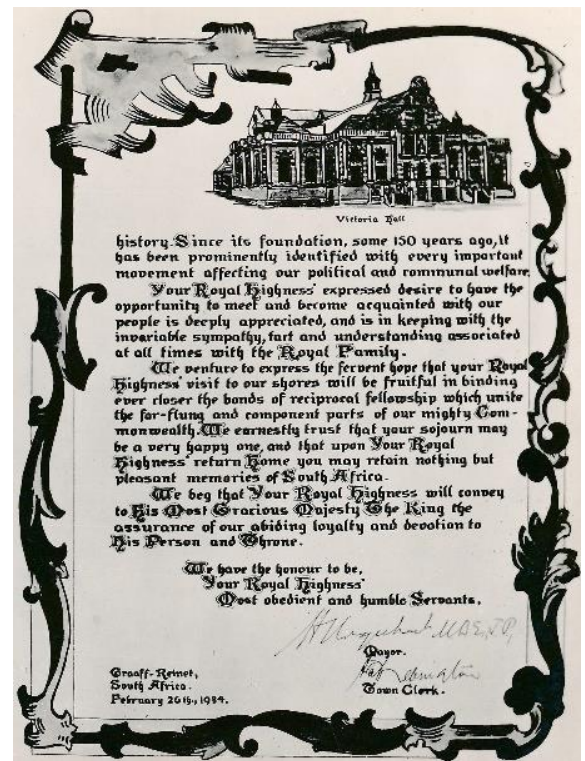 Victoria Hall
history. Since its foundation, some 150 years ago, it
has been prominently identified with every important
movement affecting our political and communal welfare.
Your Royal Highness' expressed desire to have the
opportunity to meet and become acquainted with our
people is deeply appreciated, and is in keeping with the
invariable sympathy, tact and understanding associated
at all times with the Royal Family.
We venture to express the fervent hope that your Royal
Highness' visit to our shores will be fruitful in binding
ever closer the bonds of reciprocal fellowship which unite
the far-flung and component parts of our mighty Com-
monwealth. We earnestly trust that your sojourn may
be a very happy one, and that upon Your Royal
Highness' return Home you may retain nothing but
pleasant memories of South Africa.
We beg that Your Royal Highness will convey
to His Most Gracious Majesty The King the
assurance of our abiding loyalty and devotion to
His Person and Throne.
We have the honour to be,
Your Royal Highness'
Most obedient and humble Servants,
MBE, JP,
Mayor.
Town Clerk.
Graaff-Reinet,
South Africa.
February 26th, 1934.